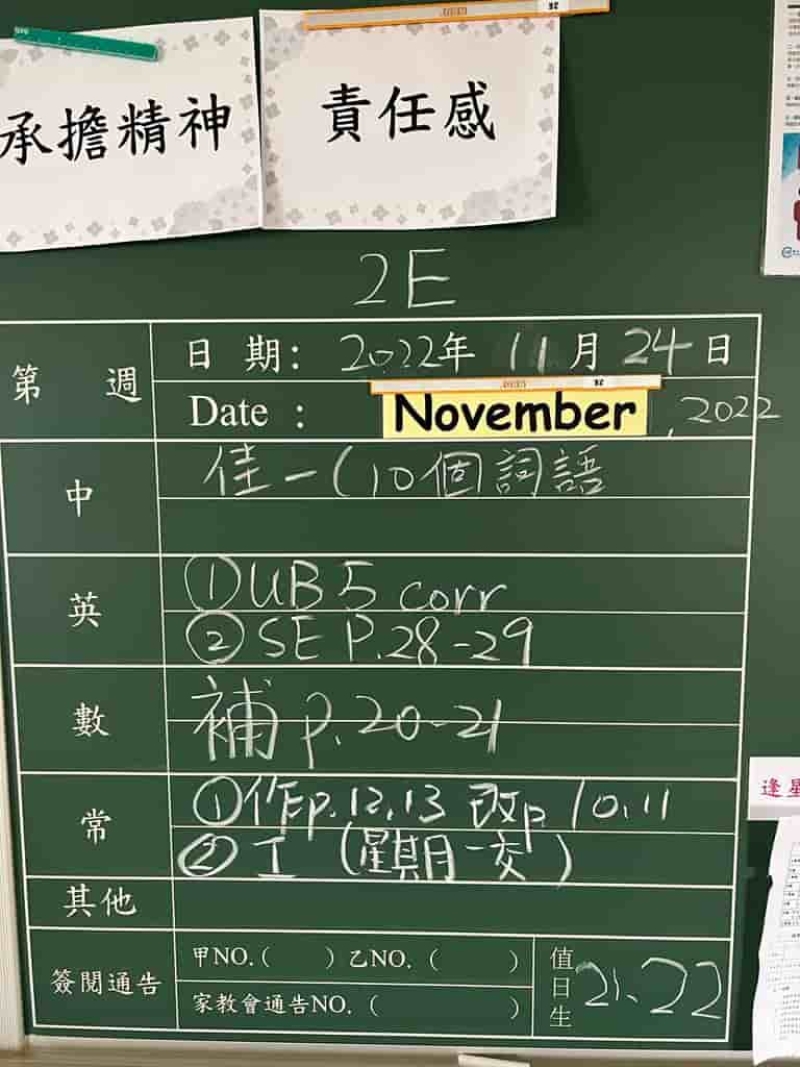 承擔精神
責任感
2E
第 週
日 期： 2022年 11月 24日
Date : November , 2022
中
佳一(10個詞語
英
①UB 5 corr
②SE P.28-29
數
補 p.20-21
常
①作p.12,13 改p 10,11
②工 (星期一交)
其他
簽閱通告
甲NO.( ) 乙NO. ( )
家教會通告NO. ( )
值日生 21、22
逢星